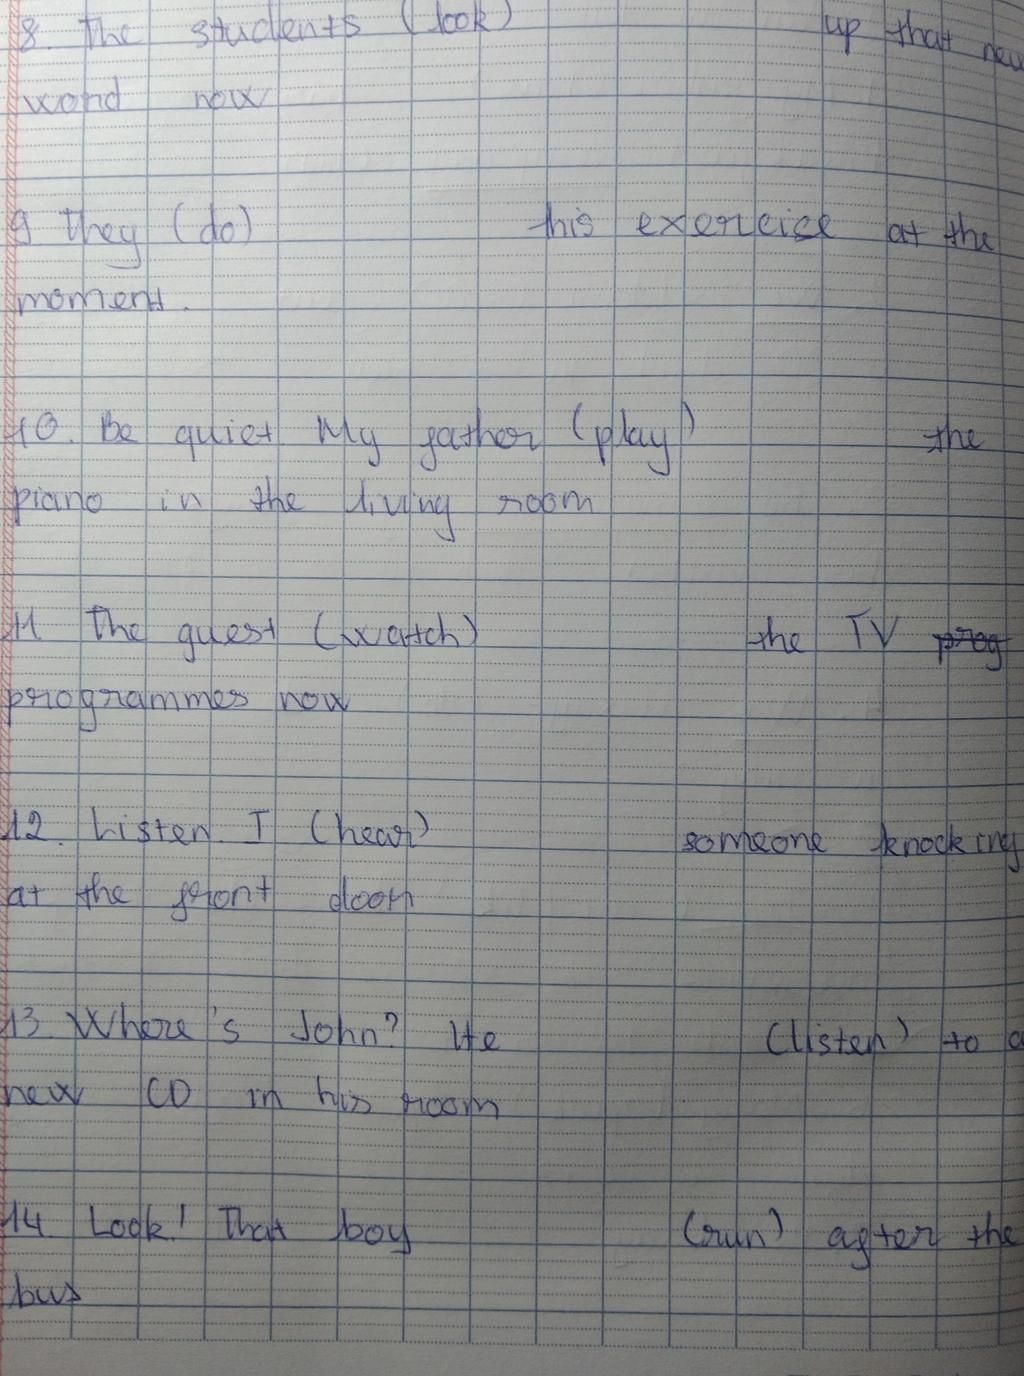 8. The students (look) up that new
word now
9 they (do) this exercise at the
moment.
10. Be quiet My father (play) the
piano in the living room
11 The guest (watch) the TV prog
programmes now
12. Listen I (hear) someone knocking
at the front door
13 Where's John? He (listen) to a
new CD in his room
14 Look! That boy (run) after the
bus